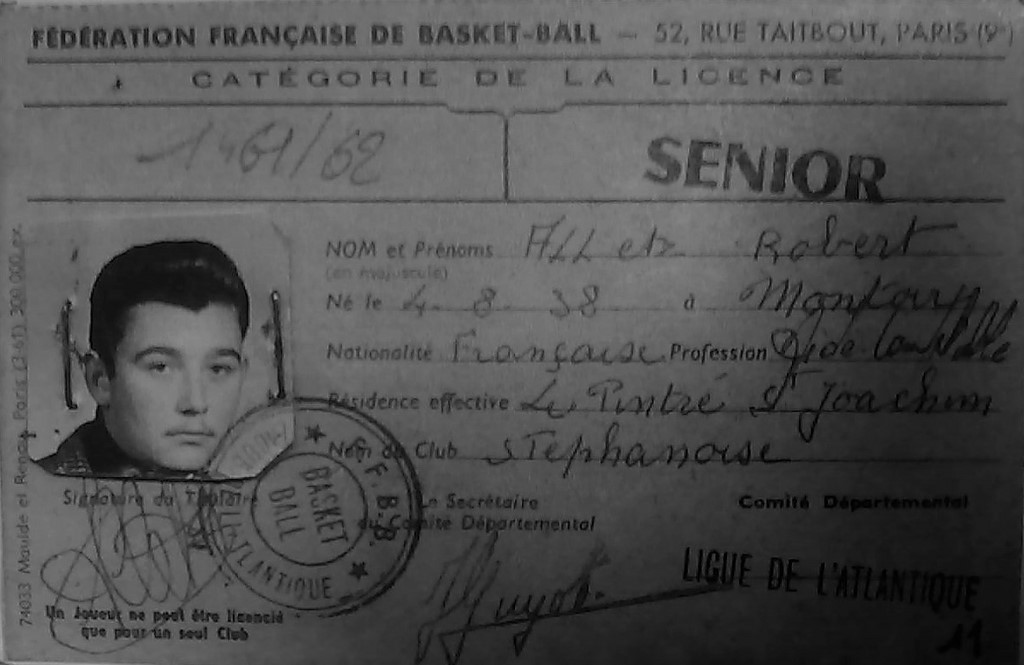 FÉDÉRATION FRANÇAISE DE BASKET-BALL — 52, RUE TAITBOUT, PARIS (9e)
CATÉGORIE DE LA LICENCE
1961/62
SENIOR
NOM et Prénoms Robert
(en majuscule)
Né le 4 - 8 - 38 à
Nationalité Française Profession
Résidence effective St Joachim
Nom du Club Stephanoise
Signature du Titulaire
Le Secrétaire
du Comité Départemental
Comité Départemental
F.F.B.B.
BASKET
BALL
ATLANTIQUE
LIGUE DE L'ATLANTIQUE
11
Un Joueur ne peut être licencié
que pour un seul Club
74033 Maulde et Renou, Paris (3-61) 300.000 ex.